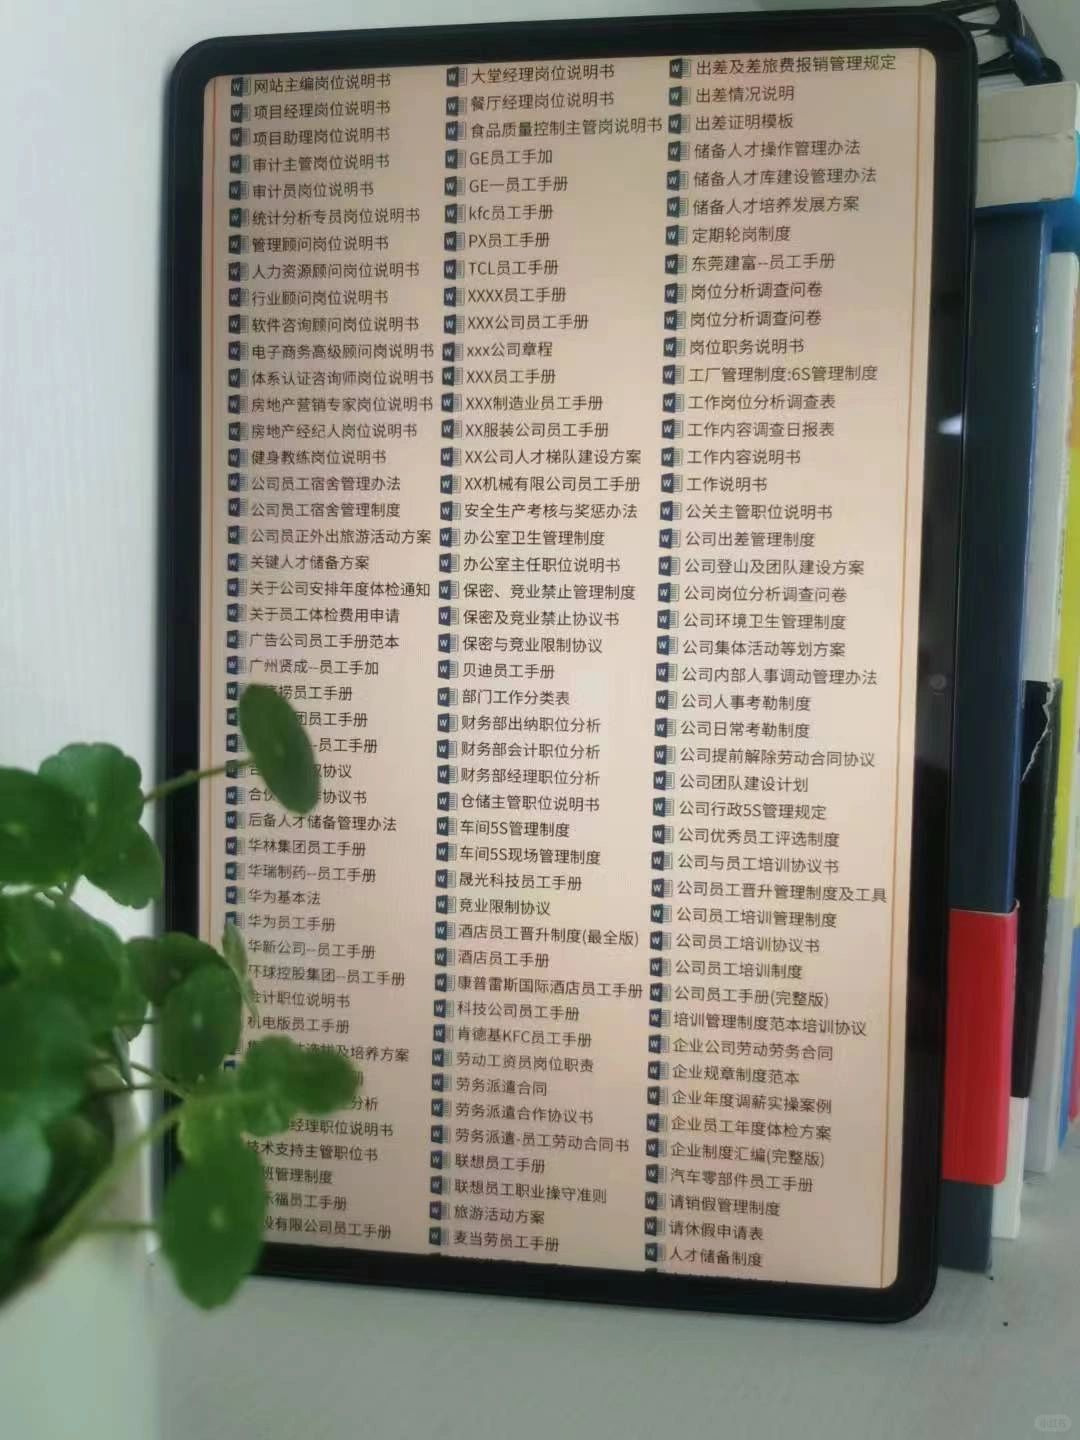 网站主编岗位说明书
项目经理岗位说明书
项目助理岗位说明书
审计主管岗位说明书
审计员岗位说明书
统计分析专员岗位说明书
管理顾问岗位说明书
人力资源顾问岗位说明书
行业顾问岗位说明书
软件咨询顾问岗位说明书
电子商务高级顾问岗说明书
体系认证咨询师岗位说明书
房地产营销专家岗位说明书
房地产经纪人岗位说明书
健身教练岗位说明书
公司员工宿舍管理办法
公司员工宿舍管理制度
公司员正外出旅游活动方案
关键人才储备方案
关于公司安排年度体检通知
关于员工体检费用申请
广告公司员工手册范本
广州贤成--员工手加
捞员工手册
团员工手册
--员工手册
协议
协议书
后备人才储备管理办法
华林集团员工手册
华瑞制药--员工手册
华为基本法
华为员工手册
华新公司--员工手册
环球控股集团--员工手册
会计职位说明书
机电版员工手册
及培养方案
册
分析
经理职位说明书
技术支持主管职位书
班管理制度
乐福员工手册
设有限公司员工手册
大堂经理岗位说明书
餐厅经理岗位说明书
食品质量控制主管岗说明书
GE员工手加
GE一员工手册
kfc员工手册
PX员工手册
TCL员工手册
XXXX员工手册
XXX公司员工手册
xxx公司章程
XXX员工手册
XXX制造业员工手册
XX服装公司员工手册
XX公司人才梯队建设方案
XX机械有限公司员工手册
安全生产考核与奖惩办法
办公室卫生管理制度
办公室主任职位说明书
保密、竞业禁止管理制度
保密及竞业禁止协议书
保密与竞业限制协议
贝迪员工手册
部门工作分类表
财务部出纳职位分析
财务部会计职位分析
财务部经理职位分析
仓储主管职位说明书
车间5S管理制度
车间5S现场管理制度
晟光科技员工手册
竞业限制协议
酒店员工晋升制度(最全版)
酒店员工手册
康普雷斯国际酒店员工手册
科技公司员工手册
肯德基KFC员工手册
劳动工资员岗位职责
劳务派遣合同
劳务派遣合作协议书
劳务派遣-员工劳动合同书
联想员工手册
联想员工职业操守准则
旅游活动方案
麦当劳员工手册
出差及差旅费报销管理规定
出差情况说明
出差证明模板
储备人才操作管理办法
储备人才库建设管理办法
储备人才培养发展方案
定期轮岗制度
东莞建富--员工手册
岗位分析调查问卷
岗位分析调查问卷
岗位职务说明书
工厂管理制度:6S管理制度
工作岗位分析调查表
工作内容调查日报表
工作内容说明书
工作说明书
公关主管职位说明书
公司出差管理制度
公司登山及团队建设方案
公司岗位分析调查问卷
公司环境卫生管理制度
公司集体活动等划方案
公司内部人事调动管理办法
公司人事考勒制度
公司日常考勒制度
公司提前解除劳动合同协议
公司团队建设计划
公司行政5S管理规定
公司优秀员工评选制度
公司与员工培训协议书
公司员工晋升管理制度及工具
公司员工培训管理制度
公司员工培训协议书
公司员工培训制度
公司员工手册(完整版)
培训管理制度范本培训协议
企业公司劳动劳务合同
企业规章制度范本
企业年度调薪实操案例
企业员工年度体检方案
企业制度汇编(完整版)
汽车零部件员工手册
请销假管理制度
请休假申请表
人才储备制度
小红书